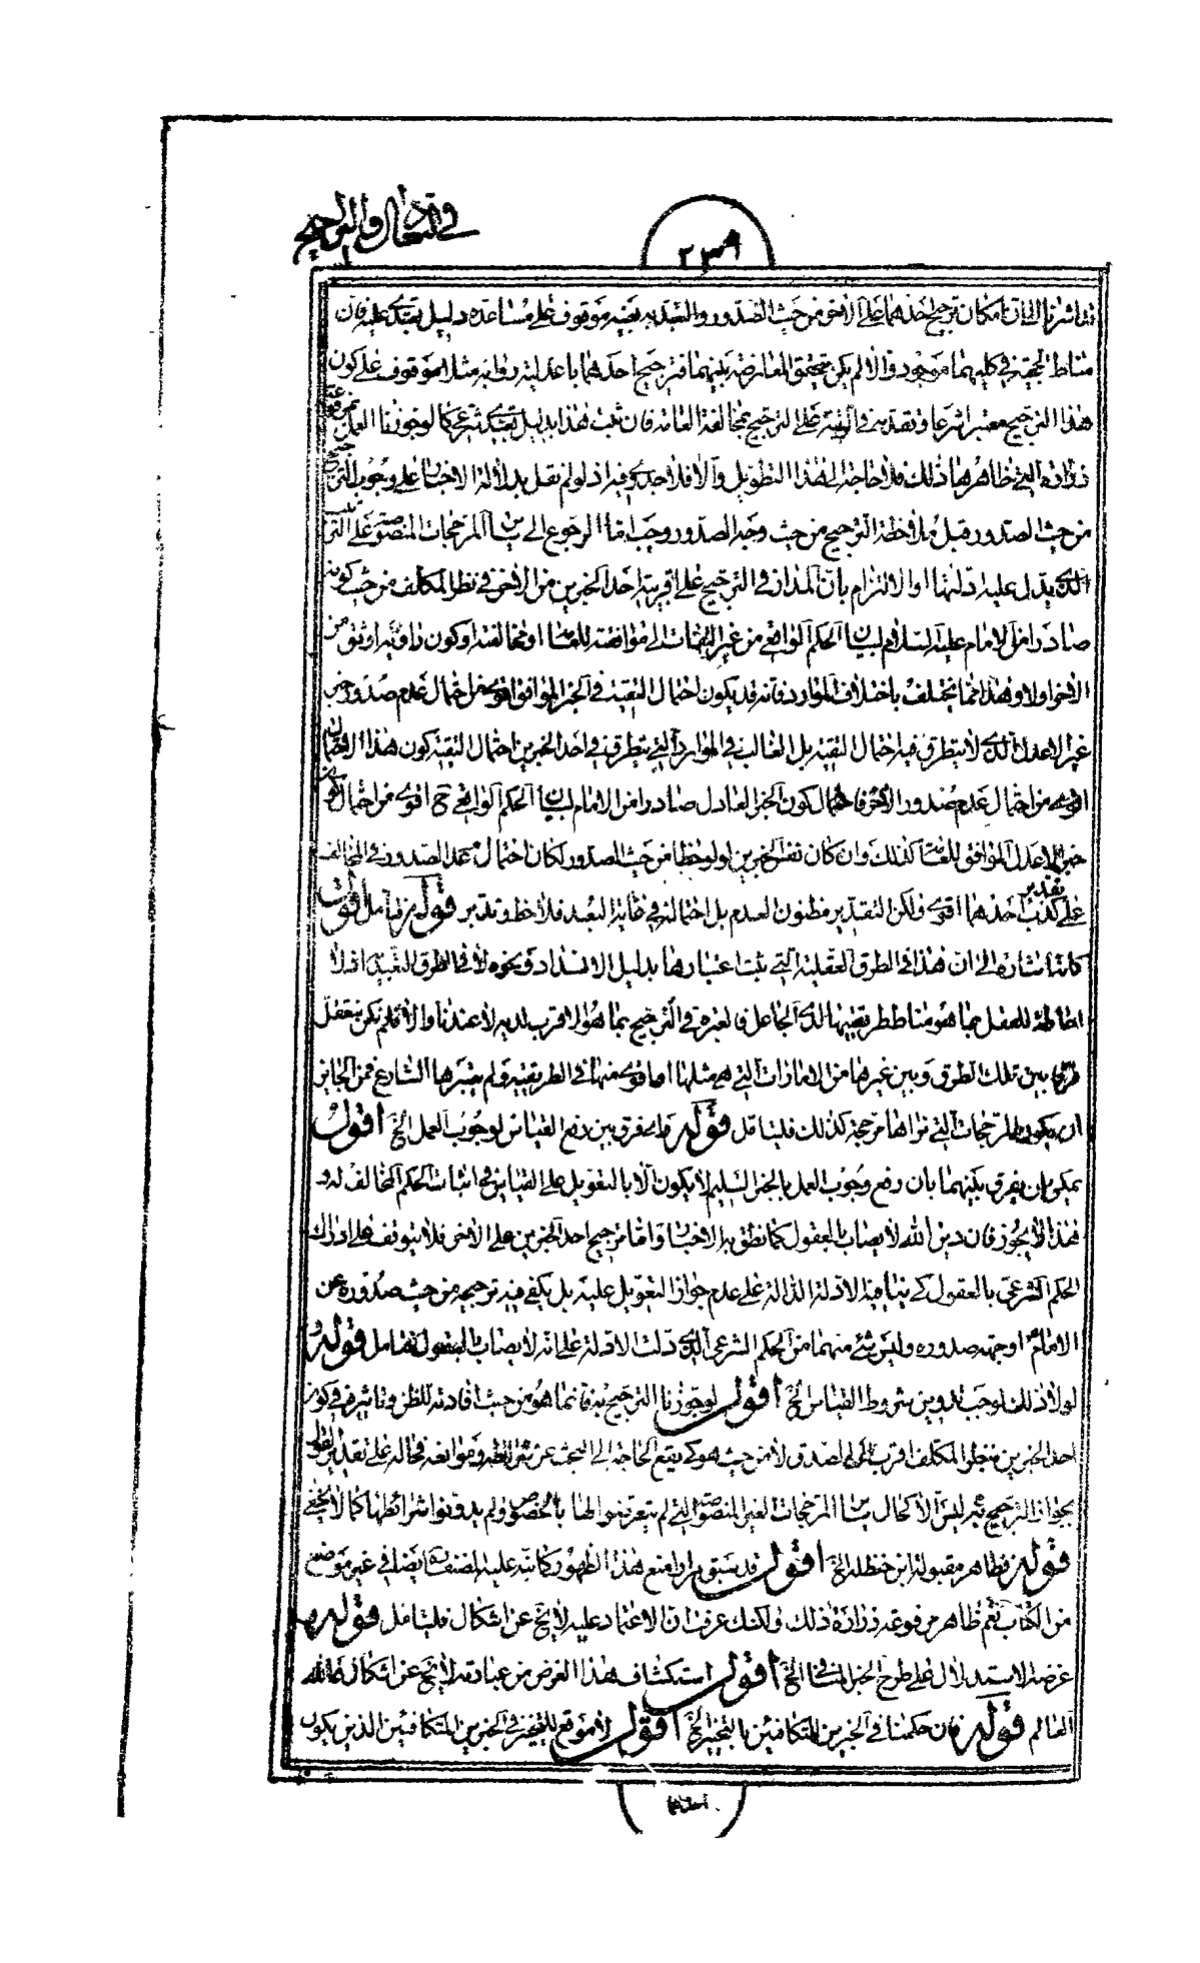 في التعادل والتراجيح
٢٣٩
اشرنا الى ان امكان ترجيح احدهما على الاخر من حيث الصدور والتعبد به بعينه موقوف على مساعدة دليل تعبدي عليه فان
مناط الحجية في كليهما موجود والا لم يكن يتحقق المعارضة بينهما فترجيح احدهما باعدلية رواية مثلا موقوف على كون
هذا الترجيح معتبرا شرعا وتقديمه في الرتبة على الترجيح بمخالفة العامة فان ثبت هذا بدليل تعبدي شرعي كما لو جوزنا العمل بمرفوعة
زرارة التي ظاهرها ذلك فلا حاجة الى هذا التطويل والا فلا اجدى فيه اذ لو لم نقل بدلالة الاخبار على وجوب الترجيح
من حيث الصدور قبل ملاحظة الترجيح من حيث وجه الصدور وجب اما الرجوع الى سائر المرجحات المنصوصة على الترتيب
الذي يدل عليه ادلتها او الالتزام بان المدار في الترجيح على اقربية احد الخبرين من الاخر في نظر المكلف من حيث كونه
صادرا من الامام عليه السلام لبيان الحكم الواقعي من غير التفات الى موافقته للعامة او مخالفته او كون راويه اوثق من
الاخر اولا وهذا مما يختلف باختلاف الموارد فانه قد يكون احتمال التقية في الخبر الموافق اقوى من احتمال عدم صدور خبر
غير الاعدل الذي لا يتطرق فيه احتمال التقية بل الغالب في الموارد التي يتطرق في احد الخبرين احتمال التقية كون هذا الاحتمال
اقوى من احتمال عدم صدور الاخر فاحتمال كون الخبر العادل صادرا من الامام لبيان الحكم الواقعي ح اقوى من احتمال كون
خبر الاعدل الموافق للعامة كذلك وان كان نفس الخبرين لو لوحظا من حيث الصدور لكان احتمال عدم الصدور في المخالف
على تقدير كذب احدهما اقوى ولكن التقدير مظنون العدم بل احتماله في غاية البعد فلاحظ وتدبر قوله فتامل اقول
كانه اشارة الى ان هذا في الطرق العقلية التي ثبت اعتبارها بدليل الانسداد ونحوه لا في الطرق التعبدية اذ لا
احاطة للعقل بما هو مناط طريقيتها لدى الجاعل فالعبرة في الترجيح بما هو الاقرب لديه لا عندنا والا فلم نكن نتعقل
فرقا بين تلك الطرق وبين غيرها من الامارات التي هي مثلها او اقوى منها في الطريقية ولم يعتبرها الشارع فمن الجائز
ان يكون المرجحات التي نراها مرجحة كذلك فليتامل قوله واي فرق بين رفع القياس لوجوب العمل الخ اقول
يمكن ان يفرق بينهما بان رفع وجوب العمل بالخبر السليم لا يكون الا بالتعويل على القياس في اثبات الحكم المخالف له و
هذا لا يجوز فان دين الله لا يصاب بالعقول كما نطق به الاخبار واما ترجيح احد الخبرين على الاخر فلا يتوقف على ادراك
الحكم الشرعي بالعقول كي ينافيه الادلة الدالة على عدم جواز التعويل عليه بل يكفي فيه ترجيحه من حيث صدوره عن
الامام او جهة صدوره وليس شئ منهما من الحكم الشرعي الذي دلت الادلة على انه لا يصاب بالعقول فتامل قوله
لولا ذلك لوجب تدوين شروط القياس الخ اقول لو جوزنا الترجيح به فانما هو من حيث افادته للظن وتاثيره في كون
احد الخبرين في نظر المكلف اقرب الى الصدق لا من حيث هو كي يقع الحاجة الى البحث عن شرائطه وموانعه فحاله على تقدير القول
بجواز الترجيح به ليس الا كحال سائر المرجحات الغير المنصوصة التي لم يتعرضوا لها بالخصوص ولم يدونوا شرائطها كما لا يخفى
قوله فظاهر مقبولة ابن حنظلة الخ اقول قد سبق مرارا منع هذا الظهور كما نبه عليه المصنف ره ايضا في غير موضع
من الكتاب نعم ظاهر مرفوعة زرارة ذلك ولكنك عرفت ان الاعتماد عليه لا يخ عن اشكال فليتامل قوله
غرضه الاستدلال على طرح الخبر المنافي الخ اقول استكشاف هذا الغرض من عبارته لا يخ عن اشكال فالله
العالم قوله فان حكمنا في الخبرين المتكافئين بالتخيير الخ اقول لا موقع للتخيير في الخبرين المتكافئين الذين يكون
احدهما